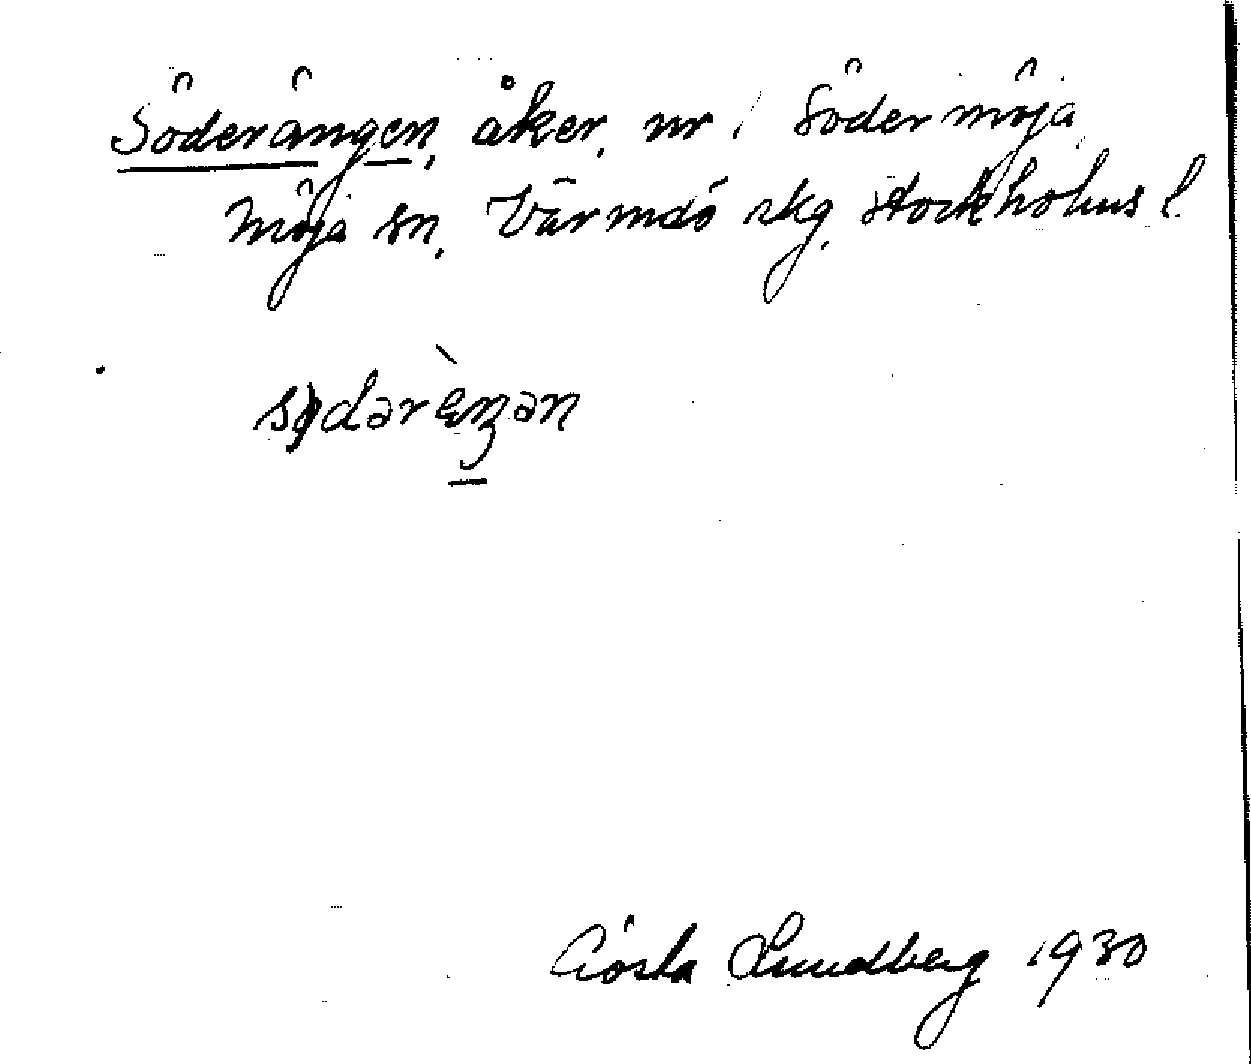 Söderängen, åker, nr 1 Södermöja
Möja sn, Värmdö skg, Stockholms l.
sødərὲŋən
Gösta Lundberg 1930